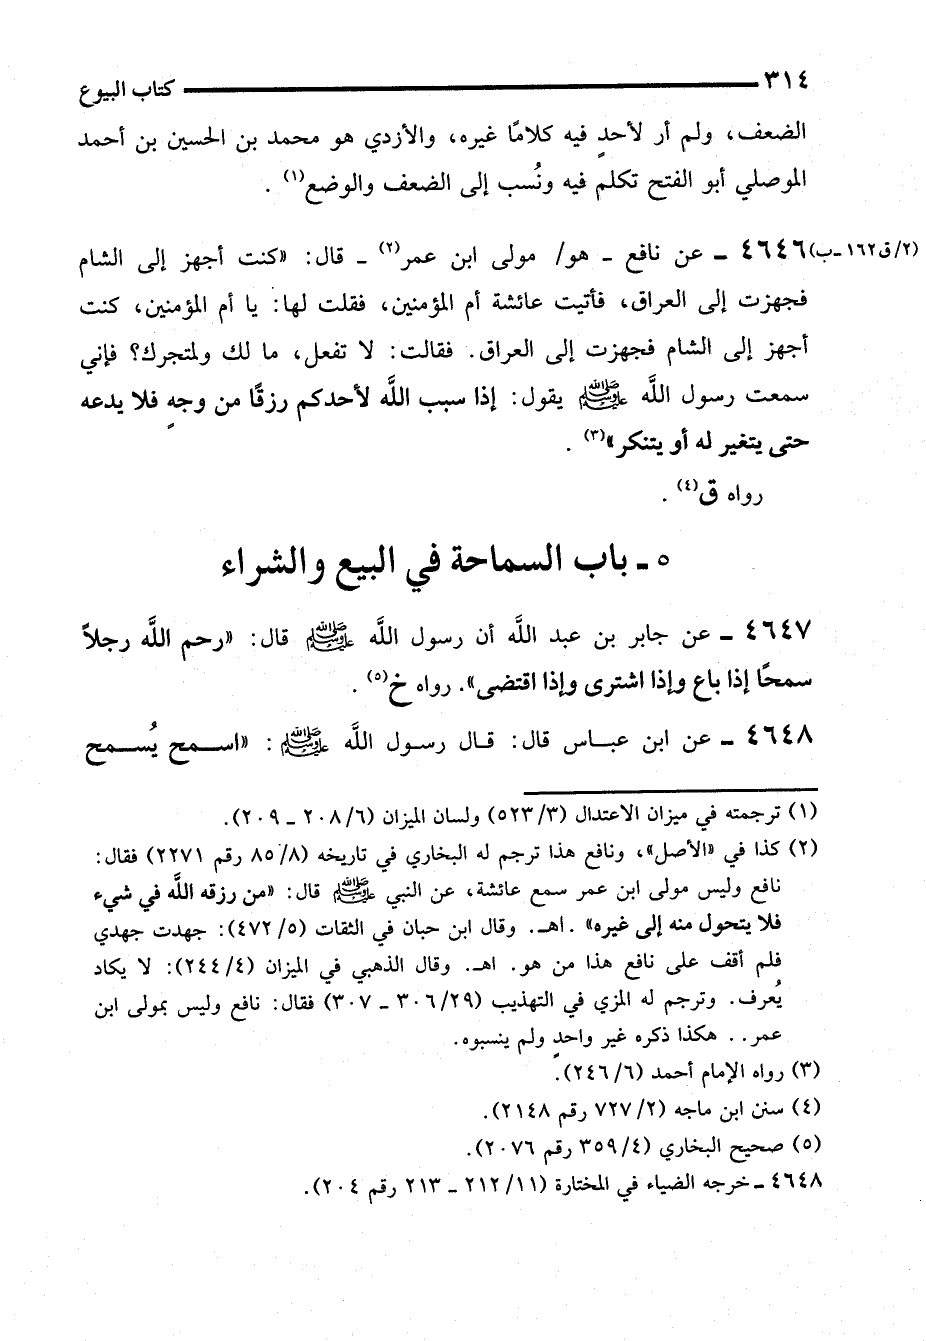 ٣١٤ كتاب البيوع
الضعف، ولم أر لأحدٍ فيه كلامًا غيره، والأزدي هو محمد بن الحسين بن أحمد
الموصلي أبو الفتح تكلم فيه ونُسب إلى الضعف والوضع(١) .
(٢/ق١٦٢-ب) ٤٦٤٦ ـ عن نافع ـ هو/ مولى ابن عمر(٢) ـ قال: «كنت أجهز إلى الشام
فجهزت إلى العراق، فأتيت عائشة أم المؤمنين، فقلت لها: يا أم المؤمنين، كنت
أجهز إلى الشام فجهزت إلى العراق. فقالت: لا تفعل، ما لك ولمتجرك؟ فإني
سمعت رسول اللَّه ﷺ يقول: إذا سبب اللَّه لأحدكم رزقًا من وجهٍ فلا يدعه
حتى يتغير له أو يتنكر»(٣) .
رواه ق(٤) .
٥ ـ باب السماحة في البيع والشراء
٤٦٤٧ ـ عن جابر بن عبد اللَّه أن رسول اللَّه ﷺ قال: «رحم اللَّه رجلاً
سمحًا إذا باع وإذا اشترى وإذا اقتضى». رواه خ(٥) .
٤٦٤٨ ـ عن ابن عباس قال: قال رسول اللَّه ﷺ : «اسمح يُسمح
(١) ترجمته في ميزان الاعتدال (٥٢٣/٣) ولسان الميزان (٢٠٨/٦ ـ ٢٠٩).
(٢) كذا في «الأصل»، ونافع هذا ترجم له البخاري في تاريخه (٨٥/٨ رقم ٢٢٧١) فقال:
نافع وليس مولى ابن عمر سمع عائشة، عن النبي ﷺ قال: «من رزقه اللَّه في شيء
فلا يتحول منه إلى غيره» .اهـ. وقال ابن حبان في الثقات (٤٧٢/٥): جهدت جهدي
فلم أقف على نافع هذا من هو. اهـ. وقال الذهبي في الميزان (٢٤٤/٤): لا يكاد
يُعرف. وترجم له المزي في التهذيب (٣٠٦/٢٩ ـ ٣٠٧) فقال: نافع وليس بمولى ابن
عمر.. هكذا ذكره غير واحدٍ ولم ينسبوه.
(٣) رواه الإمام أحمد (٢٤٦/٦).
(٤) سنن ابن ماجه (٧٢٧/٢ رقم ٢١٤٨).
(٥) صحيح البخاري (٣٥٩/٤ رقم ٢٠٧٦).
٤٦٤٨ ـ خرجه الضياء في المختارة (٢١٢/١١ ـ ٢١٣ رقم ٢٠٤).